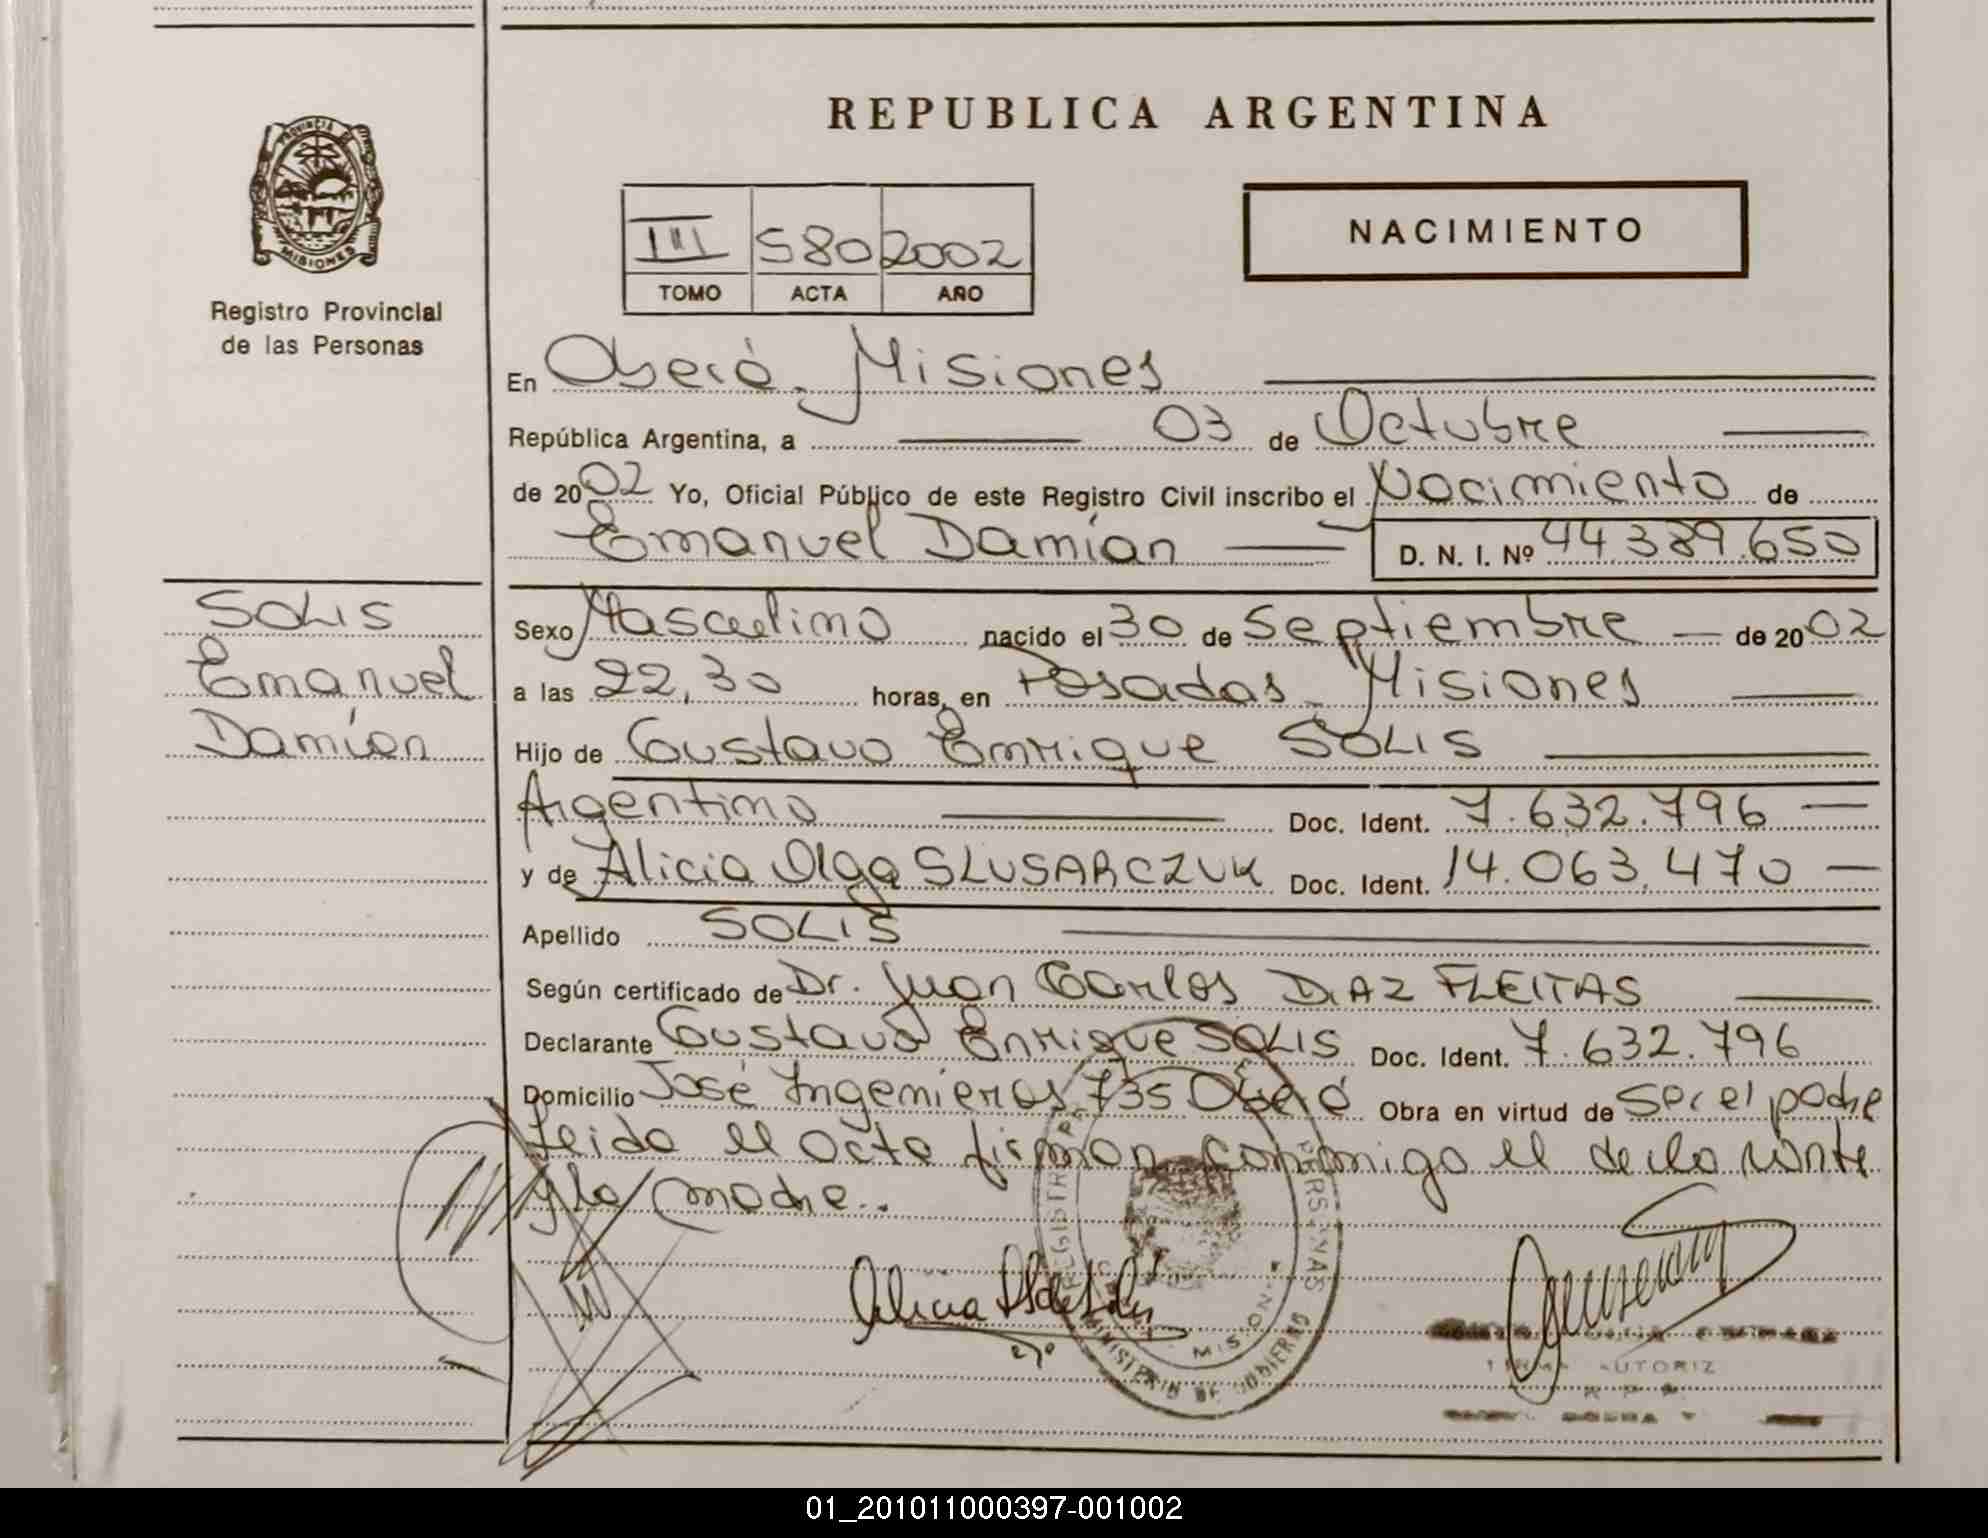 REPUBLICA ARGENTINA
PROVINCIA DE
MISIONES
Registro Provincial
de las Personas
III 580 2002
TOMO ACTA AÑO
NACIMIENTO
En Oberá. Misiones
República Argentina, a 03 de Octubre
de 2002 Yo, Oficial Público de este Registro Civil inscribo el Nacimiento de
Emanuel Damián D. N. I. Nº 44.389.650
SOLIS
Emanuel
Damián
Sexo Masculino nacido el 30 de Septiembre de 2002
a las 22,30 horas, en Posadas, Misiones
Hijo de Gustavo Enrique SOLIS
Argentino Doc. Ident. 7.632.796
y de Alicia Olga SLUSARCZUK Doc. Ident. 14.063.470
Apellido SOLIS
Según certificado de Dr. Juan Carlos DIAZ FLEITAS
Declarante Gustavo Enrique SOLIS Doc. Ident. 7.632.796
Domicilio José Ingenieros 735 Oberá Obra en virtud de ser el padre
Leida el acta firman conmigo el declarante
y la madre..
MINISTERIO DE GOBIERNO
01_201011000397-001002